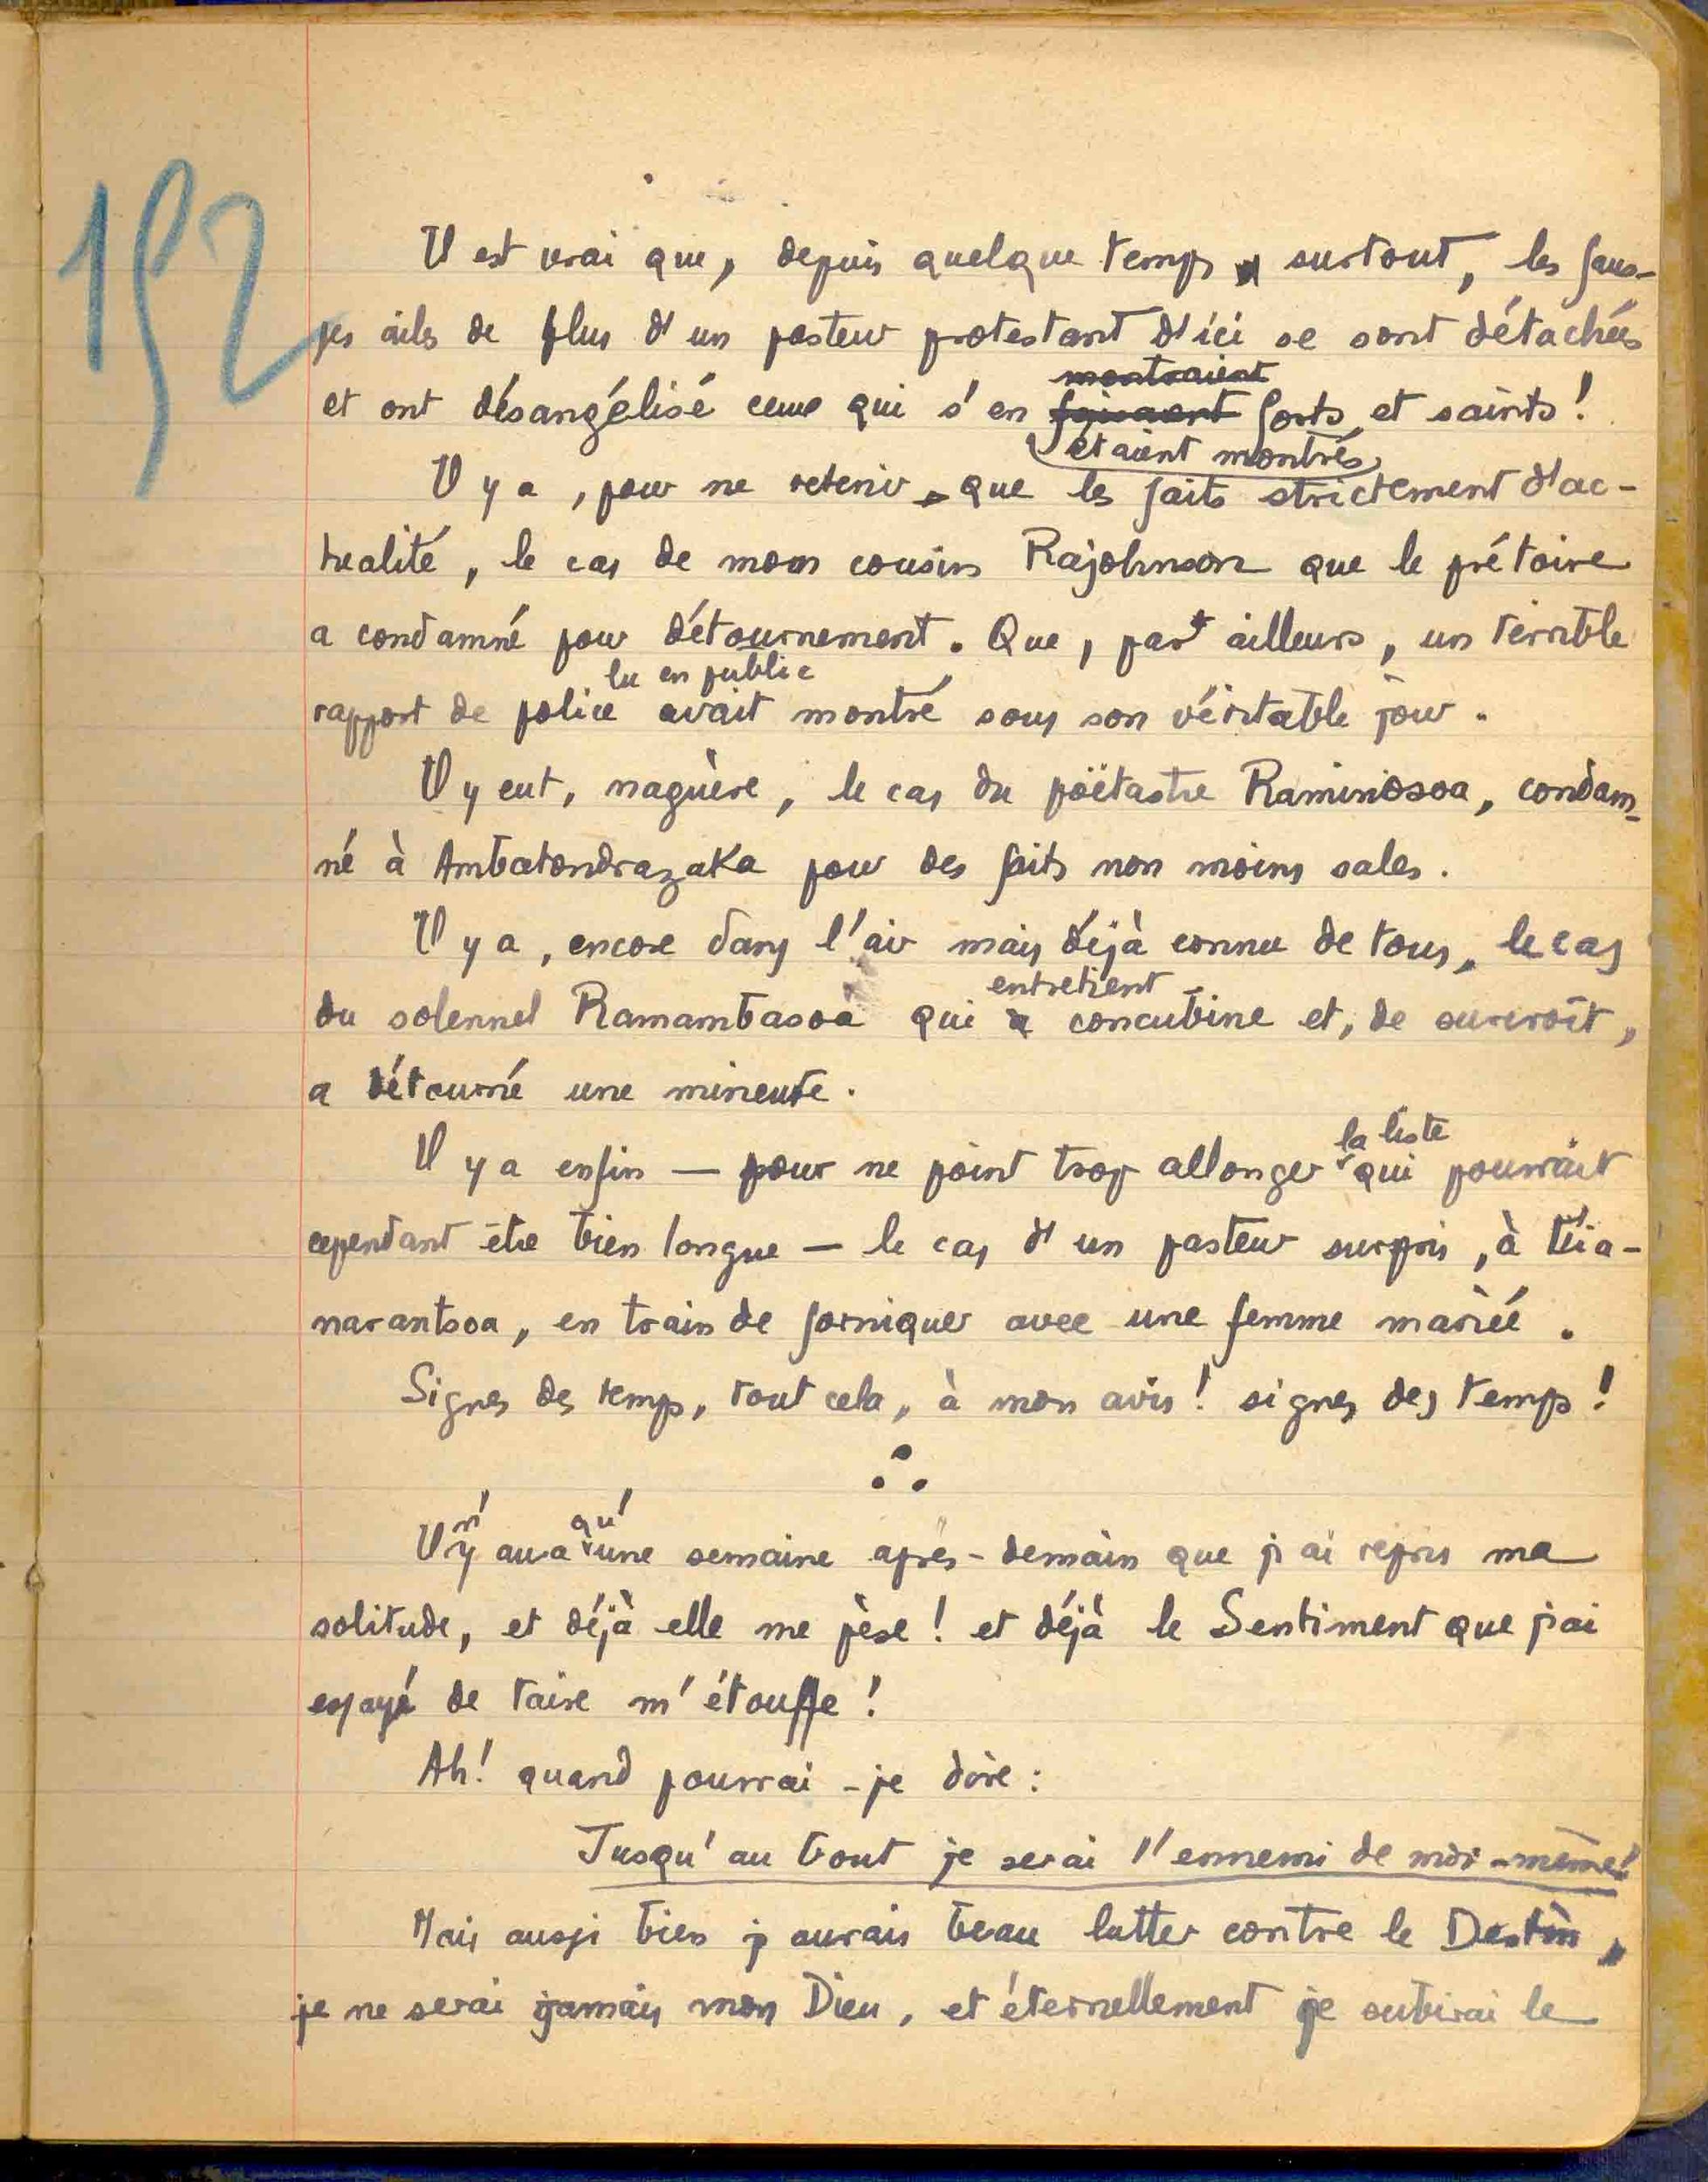 192
Il est vrai que, depuis quelque temps surtout, les faus-
ses ailes de plus d'un pasteur protestant d'ici se sont détachées
montraient
et ont désangélisé ceux qui s'en faisaient forts et saints !
étaient montrés
Il y a, pour ne retenir que les faits strictement d'ac-
tualité, le cas de mon cousin Rajohnson que le prétoire
a condamné pour détournement. Que, part ailleurs, un terrible
lu en public
rapport de police avait montré sous son véritable jour.
Il y eut, naguère, le cas du poëtastre Raminosoa, condam-
né à Ambatondrazaka pour des faits non moins sales.
Il y a, encore dans l'air mais déjà connu de tous, le cas
entretient
du solennel Ramambasoa qui a concubine et, de surcroît,
a détourné une mineure.
la liste
Il y a enfin — pour ne point trop allonger qui pourrait
cependant être bien longue — le cas d'un pasteur surpris, à Fia-
narantsoa, en train de forniquer avec une femme mariée.
Signes des temps, tout cela, à mon avis ! signes des temps !
∴
n' qu'
Il y aura une semaine après-demain que j'ai repris ma
solitude, et déjà elle me pèse ! et déjà le Sentiment que j'ai
essayé de taire m'étouffe !
Ah ! quand pourrai-je dire :
Jusqu'au bout je serai l'ennemi de moi-même !
Mais aussi bien j'aurais beau lutter contre le Destin,
je ne serai jamais mon Dieu, et éternellement je subirai le